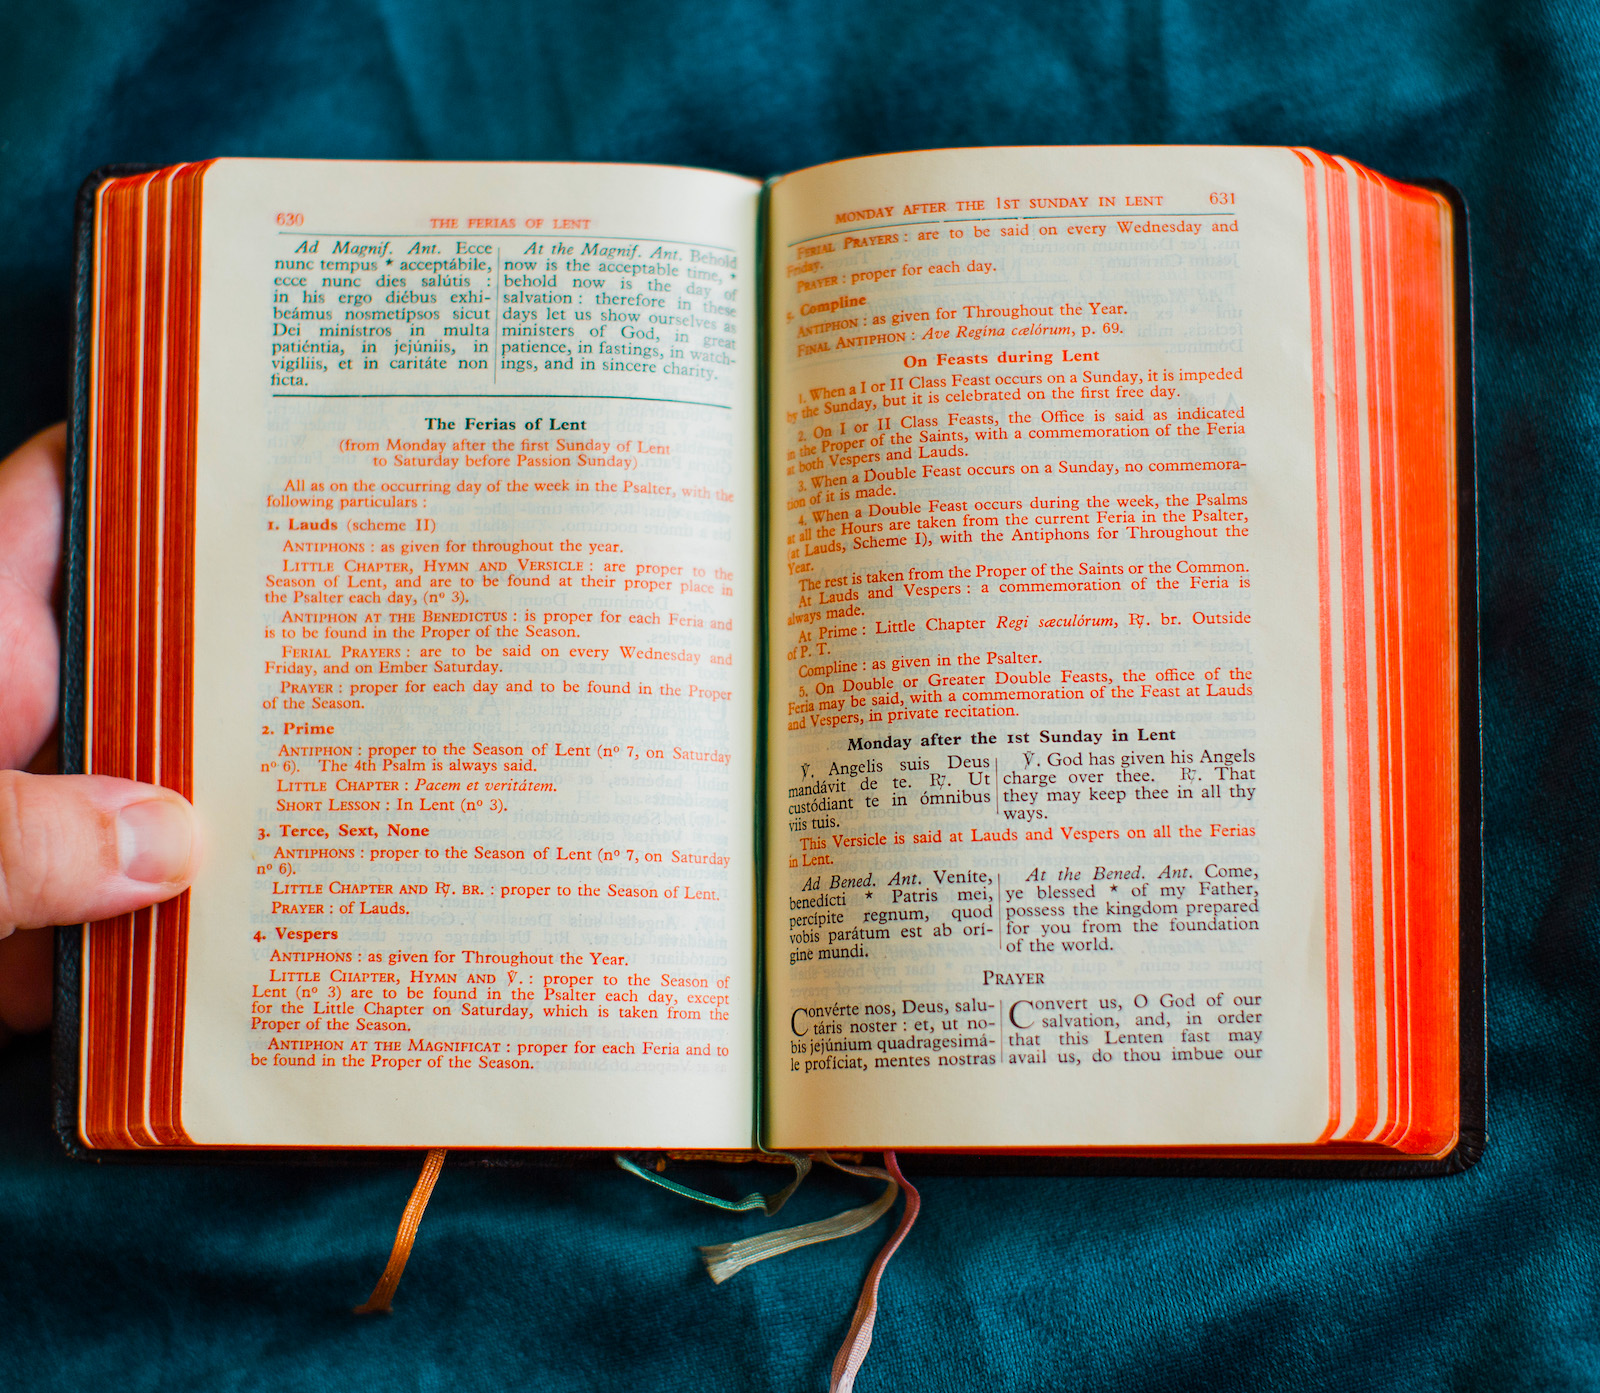 630
THE FERIAS OF LENT
Ad Magnif. Ant. Ecce
nunc tempus * acceptábile,
ecce nunc dies salútis :
in his ergo diébus exhi-
beámus nosmetípsos sicut
Dei minístros in multa
patiéntia, in jejúniis, in
vigíliis, et in caritáte non
ficta.
At the Magnif. Ant. Behold
now is the acceptable time, *
behold now is the day of
salvation : therefore in these
days let us show ourselves as
ministers of God, in great
patience, in fastings, in watch-
ings, and in sincere charity.
The Ferias of Lent
(from Monday after the first Sunday of Lent
to Saturday before Passion Sunday)
All as on the occurring day of the week in the Psalter, with the
following particulars :
1. Lauds (scheme II)
ANTIPHONS : as given for throughout the year.
LITTLE CHAPTER, HYMN AND VERSICLE : are proper to the
Season of Lent, and are to be found at their proper place in
the Psalter each day, (nº 3).
ANTIPHON AT THE BENEDICTUS : is proper for each Feria and
is to be found in the Proper of the Season.
FERIAL PRAYERS : are to be said on every Wednesday and
Friday, and on Ember Saturday.
PRAYER : proper for each day and to be found in the Proper
of the Season.
2. Prime
ANTIPHON : proper to the Season of Lent (nº 7, on Saturday
nº 6). The 4th Psalm is always said.
LITTLE CHAPTER : Pacem et veritátem.
SHORT LESSON : In Lent (nº 3).
3. Terce, Sext, None
ANTIPHONS : proper to the Season of Lent (nº 7, on Saturday
nº 6).
LITTLE CHAPTER AND ℟. BR. : proper to the Season of Lent.
PRAYER : of Lauds.
4. Vespers
ANTIPHONS : as given for Throughout the Year.
LITTLE CHAPTER, HYMN AND ℣. : proper to the Season of
Lent (nº 3) are to be found in the Psalter each day, except
for the Little Chapter on Saturday, which is taken from the
Proper of the Season.
ANTIPHON AT THE MAGNIFICAT : proper for each Feria and to
be found in the Proper of the Season.
MONDAY AFTER THE 1ST SUNDAY IN LENT
631
FERIAL PRAYERS : are to be said on every Wednesday and
Friday.
PRAYER : proper for each day.
5. Compline
ANTIPHON : as given for Throughout the Year.
FINAL ANTIPHON : Ave Regína cælórum, p. 69.
On Feasts during Lent
1. When a I or II Class Feast occurs on a Sunday, it is impeded
by the Sunday, but it is celebrated on the first free day.
2. On I or II Class Feasts, the Office is said as indicated
in the Proper of the Saints, with a commemoration of the Feria
at both Vespers and Lauds.
3. When a Double Feast occurs on a Sunday, no commemora-
tion of it is made.
4. When a Double Feast occurs during the week, the Psalms
at all the Hours are taken from the current Feria in the Psalter,
(at Lauds, Scheme I), with the Antiphons for Throughout the
Year.
The rest is taken from the Proper of the Saints or the Common.
At Lauds and Vespers : a commemoration of the Feria is
always made.
At Prime : Little Chapter Regi sæculórum, ℟. br. Outside
of P. T.
Compline : as given in the Psalter.
5. On Double or Greater Double Feasts, the office of the
Feria may be said, with a commemoration of the Feast at Lauds
and Vespers, in private recitation.
Monday after the 1st Sunday in Lent
℣. Angelis suis Deus
mandávit de te. ℟. Ut
custódiant te in ómnibus
viis tuis.
℣. God has given his Angels
charge over thee. ℟. That
they may keep thee in all thy
ways.
This Versicle is said at Lauds and Vespers on all the Ferias
in Lent.
Ad Bened. Ant. Veníte,
benedícti * Patris mei,
percípite regnum, quod
vobis parátum est ab orí-
gine mundi.
At the Bened. Ant. Come,
ye blessed * of my Father,
possess the kingdom prepared
for you from the foundation
of the world.
PRAYER
Convérte nos, Deus, salu-
táris noster : et, ut no-
bis jejúnium quadragesimá-
le profíciat, mentes nostras
Convert us, O God of our
salvation, and, in order
that this Lenten fast may
avail us, do thou imbue our